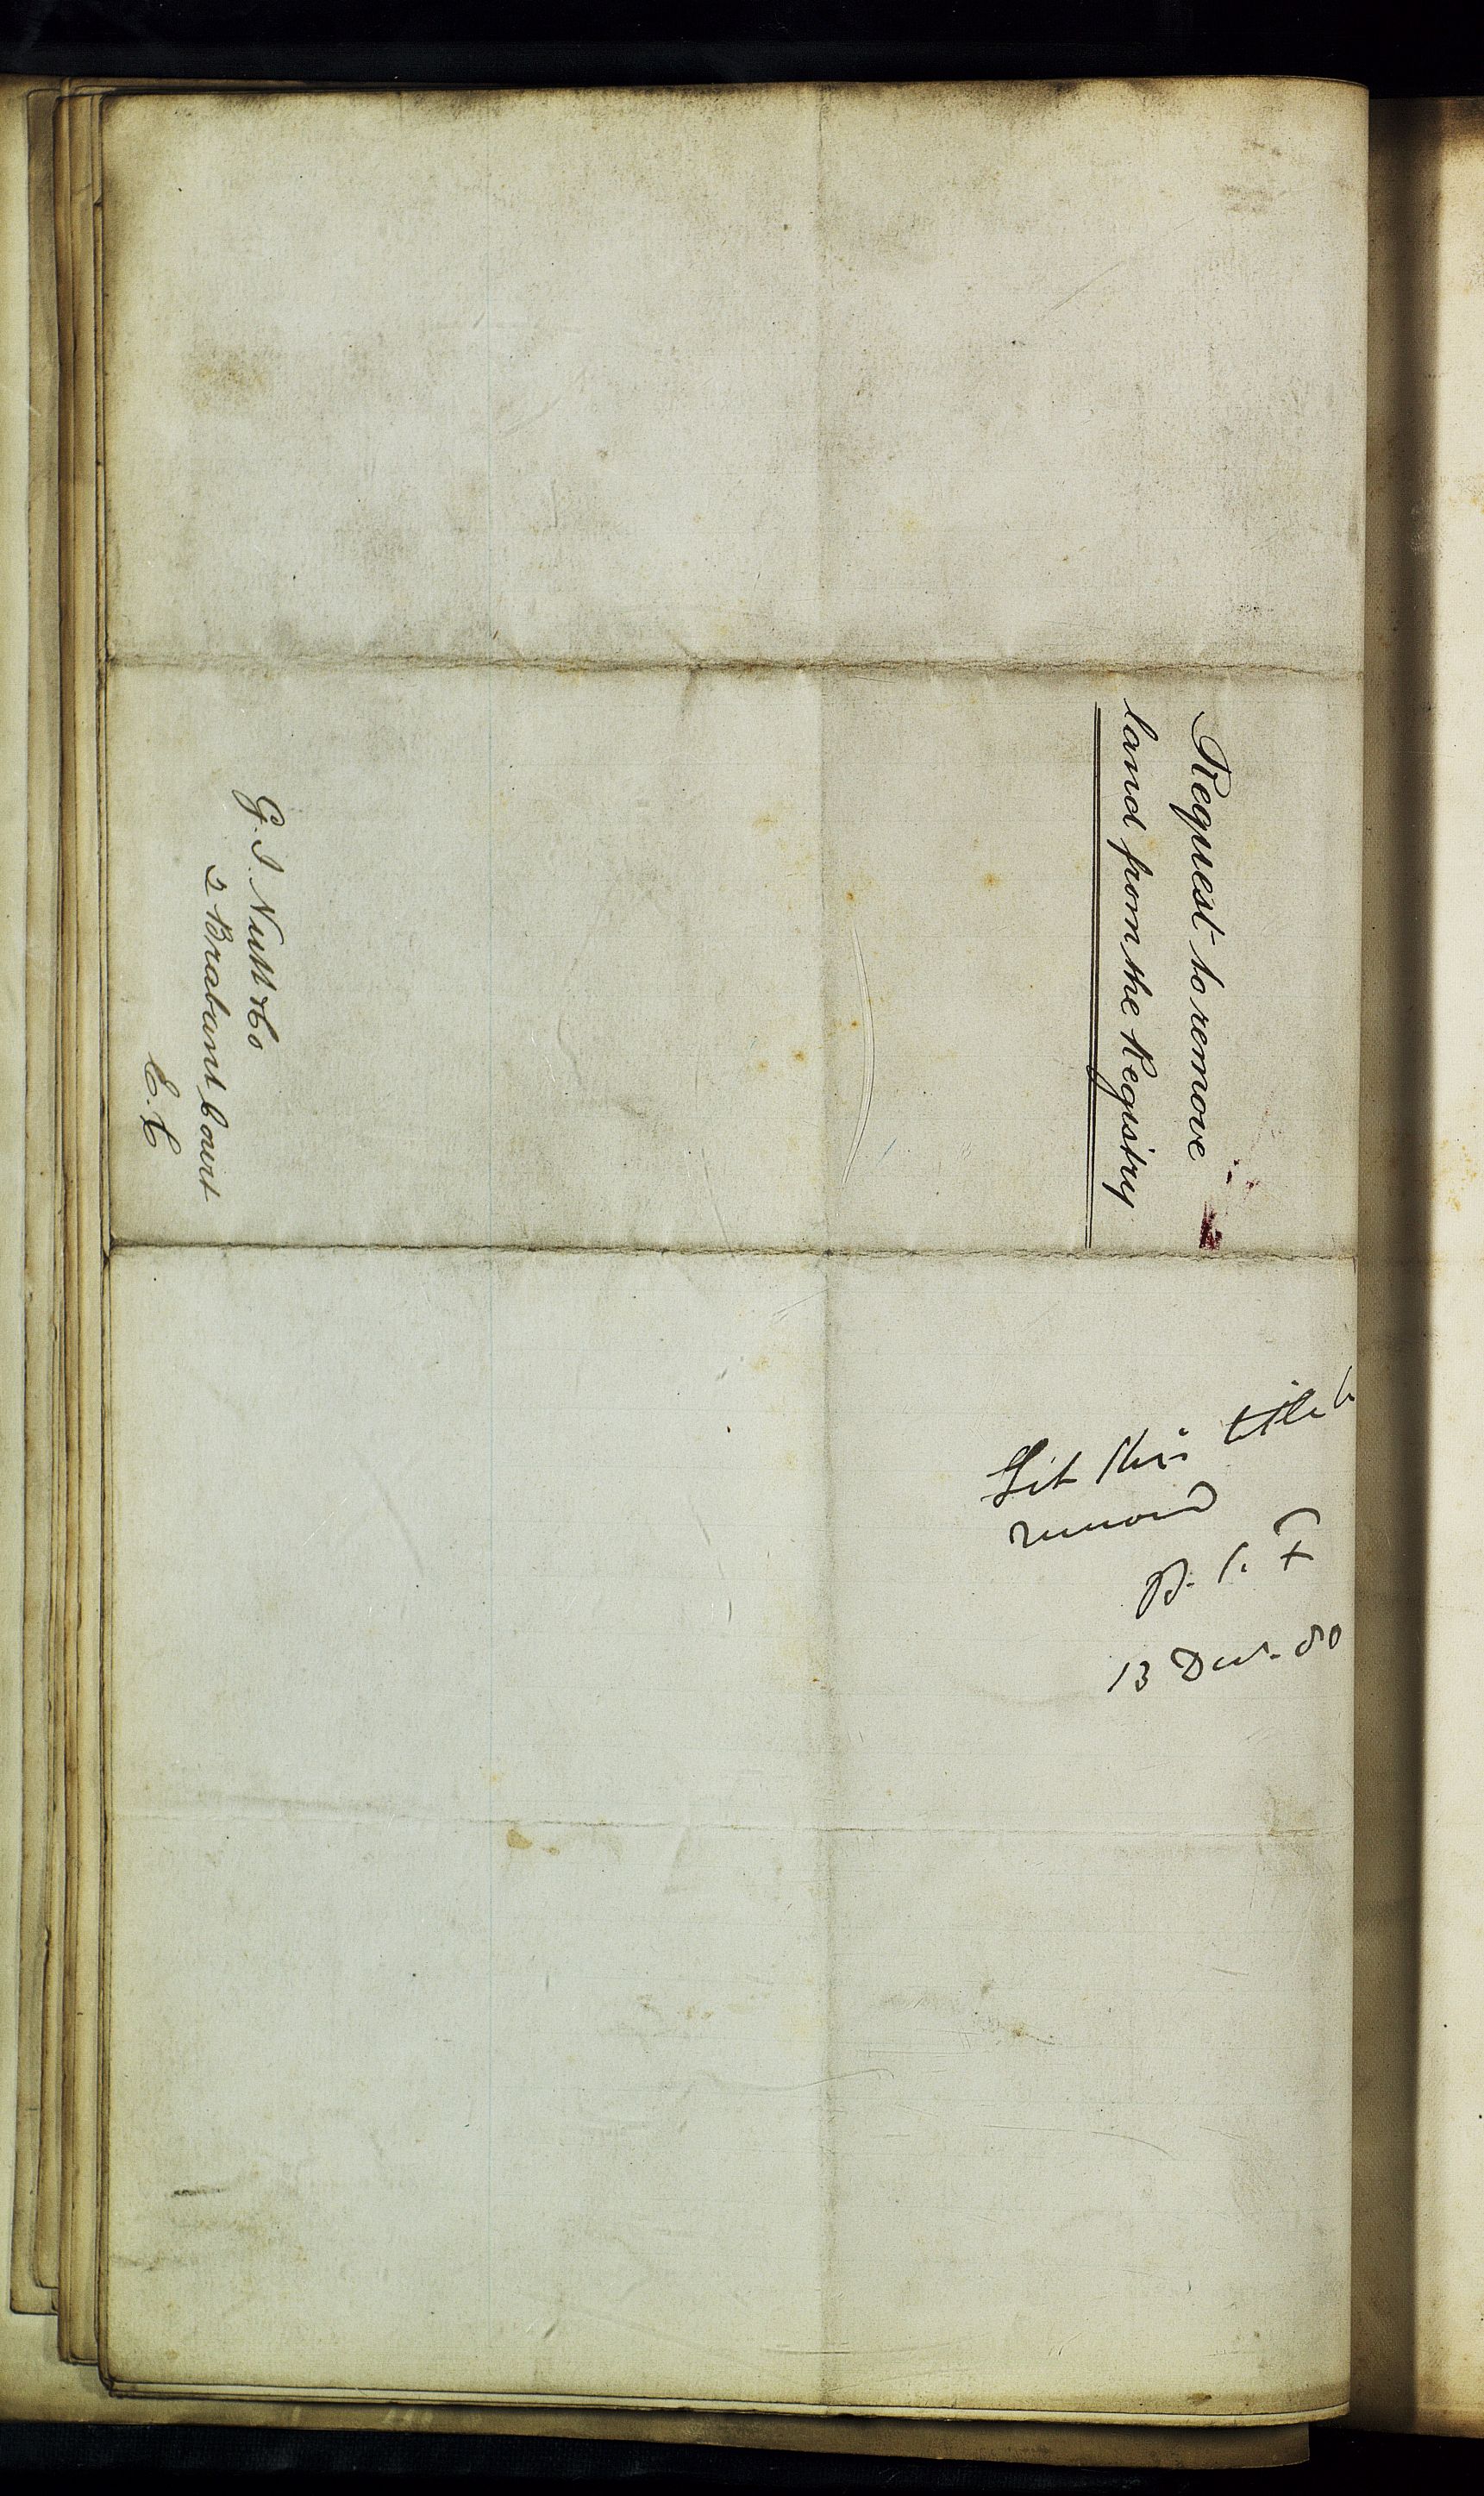 Request to remove
land from the Registry
G. I. Nutt & Co
2 Brabant Court
E.C
Let this title be
removed
B. S. F
13 Decr. 80